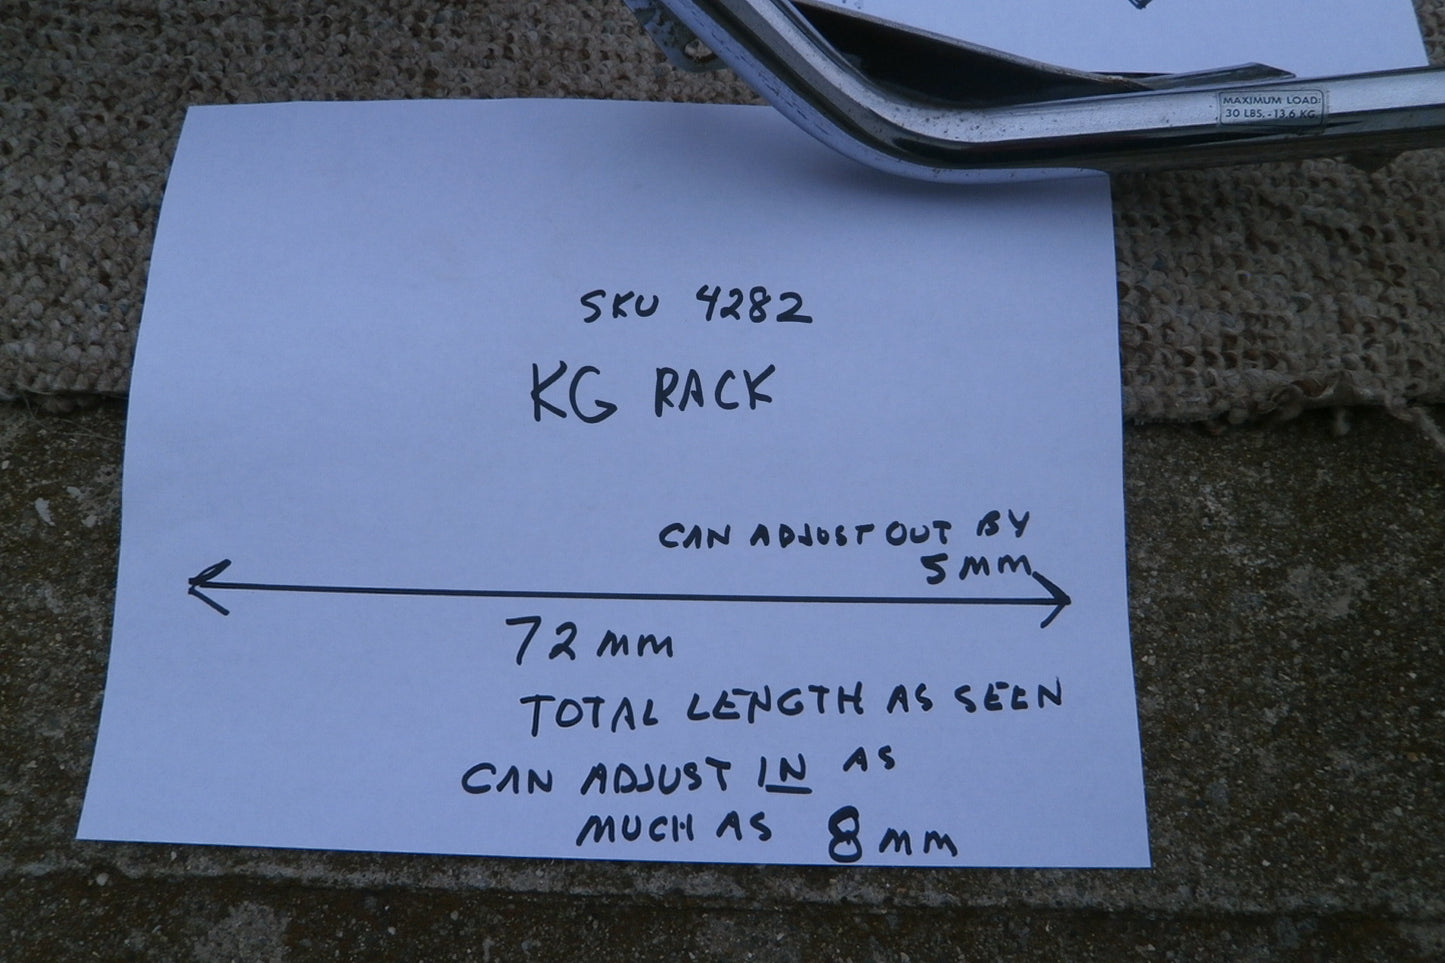 MAXIMUM LOAD:
30 LBS.-13.6 KG.
SKU 4282
KG RACK
CAN ADJUST OUT BY
5 MM
72 MM
TOTAL LENGTH AS SEEN
CAN ADJUST IN AS
MUCH AS 8 MM